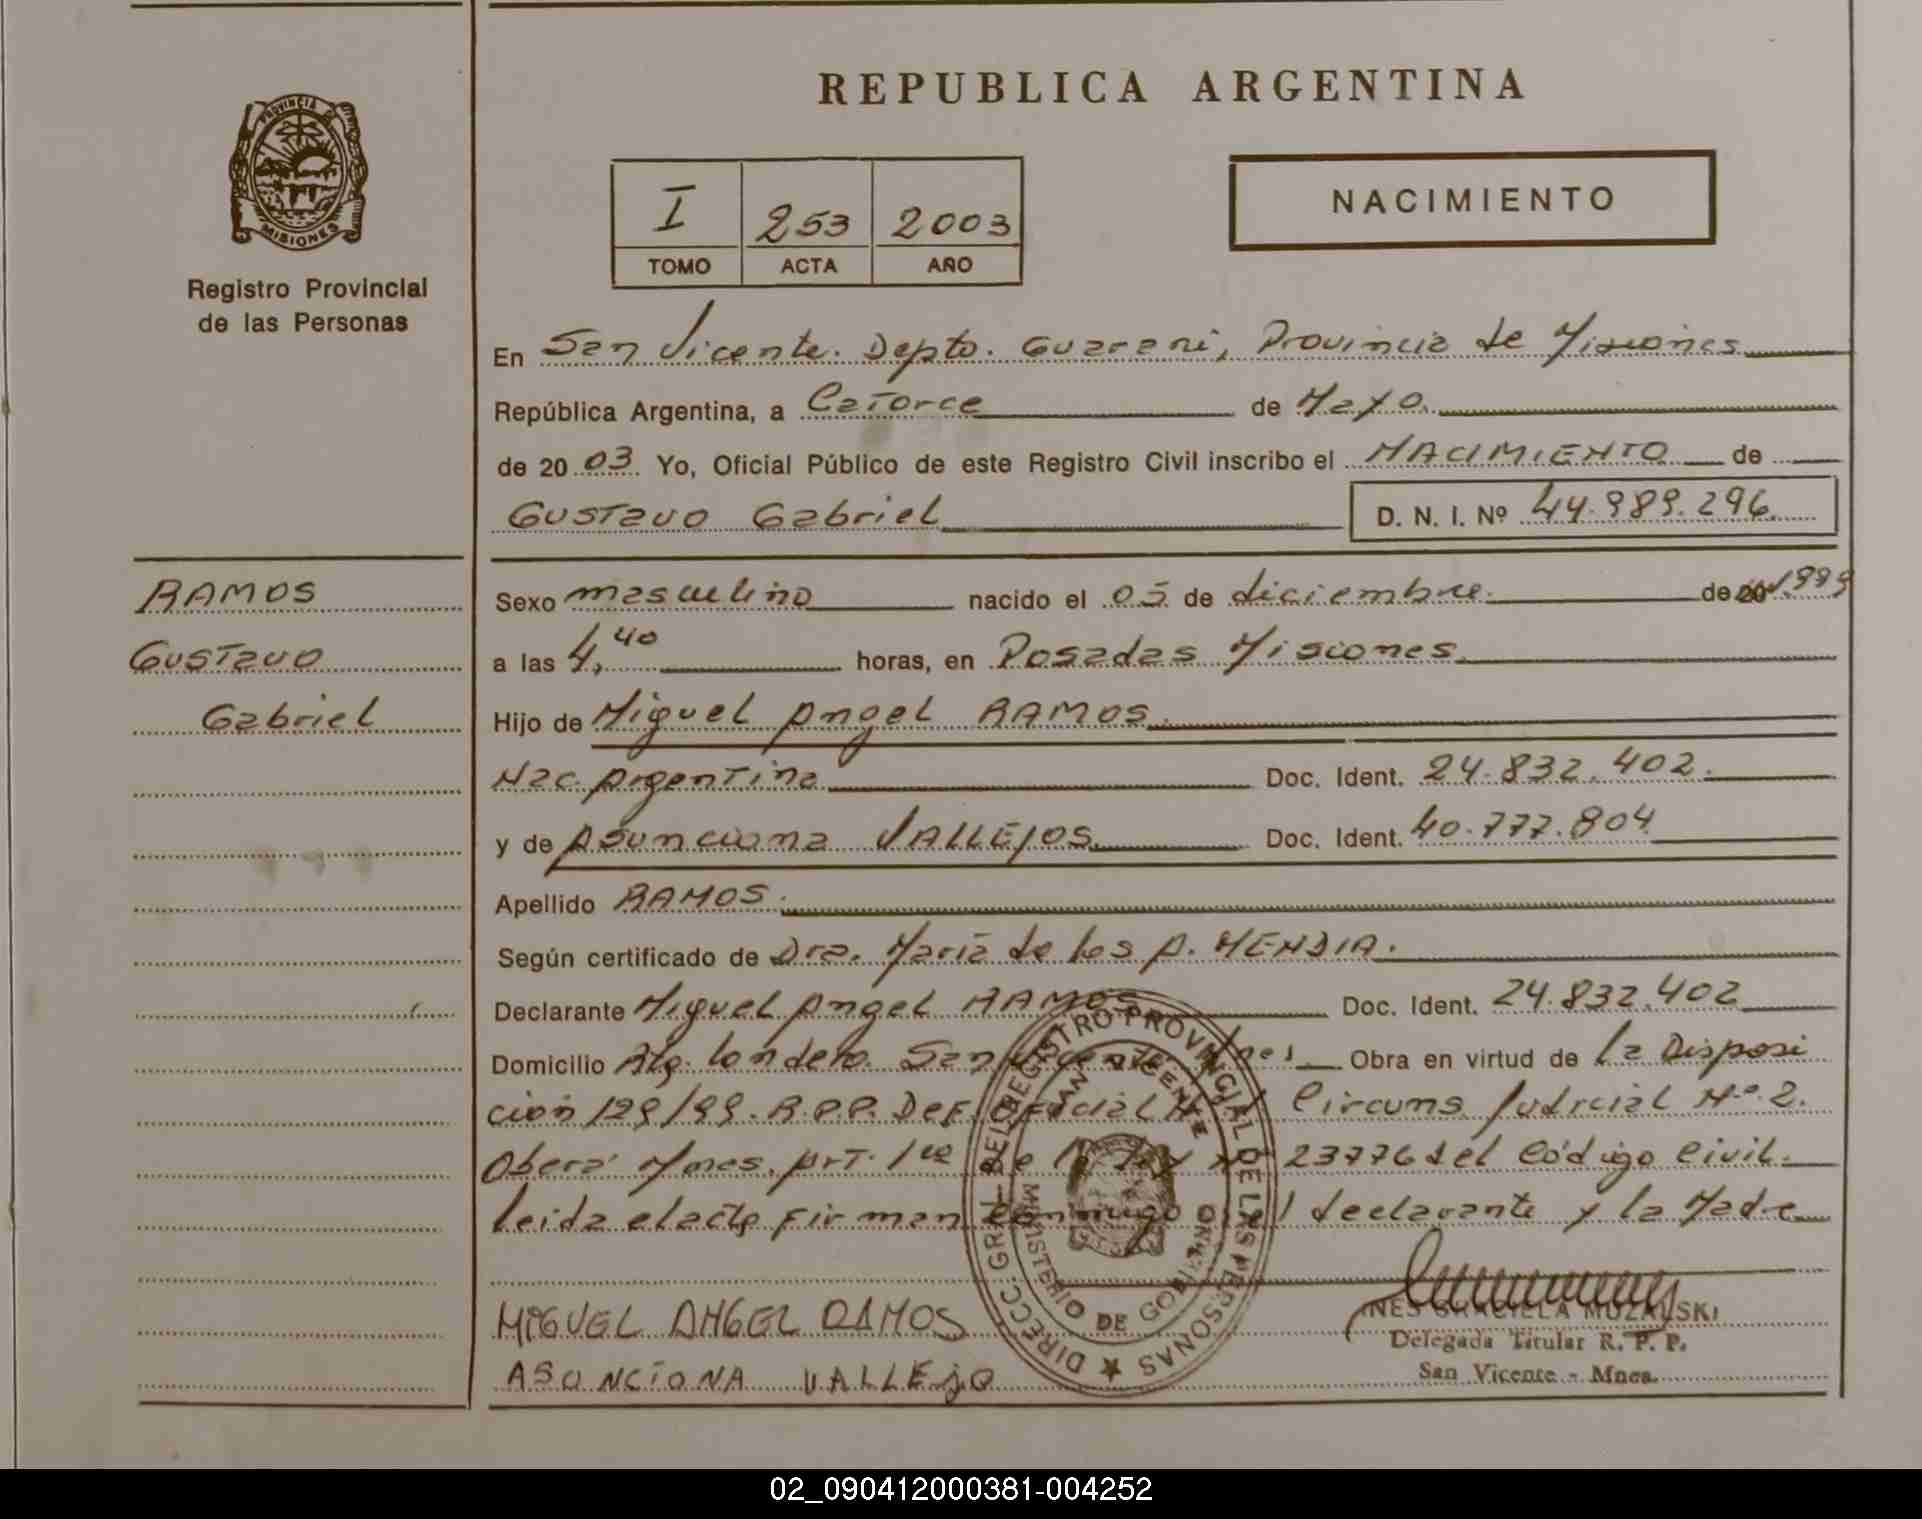 REPUBLICA ARGENTINA
PROVINCIA DE
MISIONES
Registro Provincial
de las Personas
I 253 2003
TOMO ACTA AÑO
NACIMIENTO
En San Vicente. Depto. Guarani, Provincia de Misiones
República Argentina, a Catorce de Mayo.
de 20 03 Yo, Oficial Público de este Registro Civil inscribo el NACIMIENTO de
Gustavo Gabriel D. N. I. Nº 44.989.296.
RAMOS
Gustavo
Gabriel
Sexo masculino nacido el 05 de diciembre. de 20 1999
a las 4,40 horas, en Posadas Misiones.
Hijo de Miguel Angel RAMOS.
Nac. Argentina. Doc. Ident. 24.832.402.
y de Asunciona VALLEJOS. Doc. Ident. 40.777.804
Apellido RAMOS.
Según certificado de Dra. Maria de los A. MENDIA.
Declarante Miguel Angel RAMOS Doc. Ident. 24.832.402
Domicilio Londero. San Vicente Obra en virtud de la Disposi
ción 129/99. R.P.P. Def. Circuns Judicial Nº 2.
Oberá Mnes. Art. 1ro de la Ley 23776 del Código Civil.
leida el acta firman conmigo el declarante y la Madre
MIGUEL ANGEL RAMOS
ASUNCIONA VALLEJO
DIRECC. GRAL DEL REGISTRO PROVINCIAL DE LAS PERSONAS
SAN VICENTE
MINISTERIO DE GOBIERNO
INES GRACIELA MUZALSKI
Delegada Titular R. P. P.
San Vicente - Mnes.
02_090412000381-004252